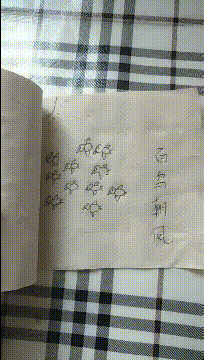 百鸟朝凤